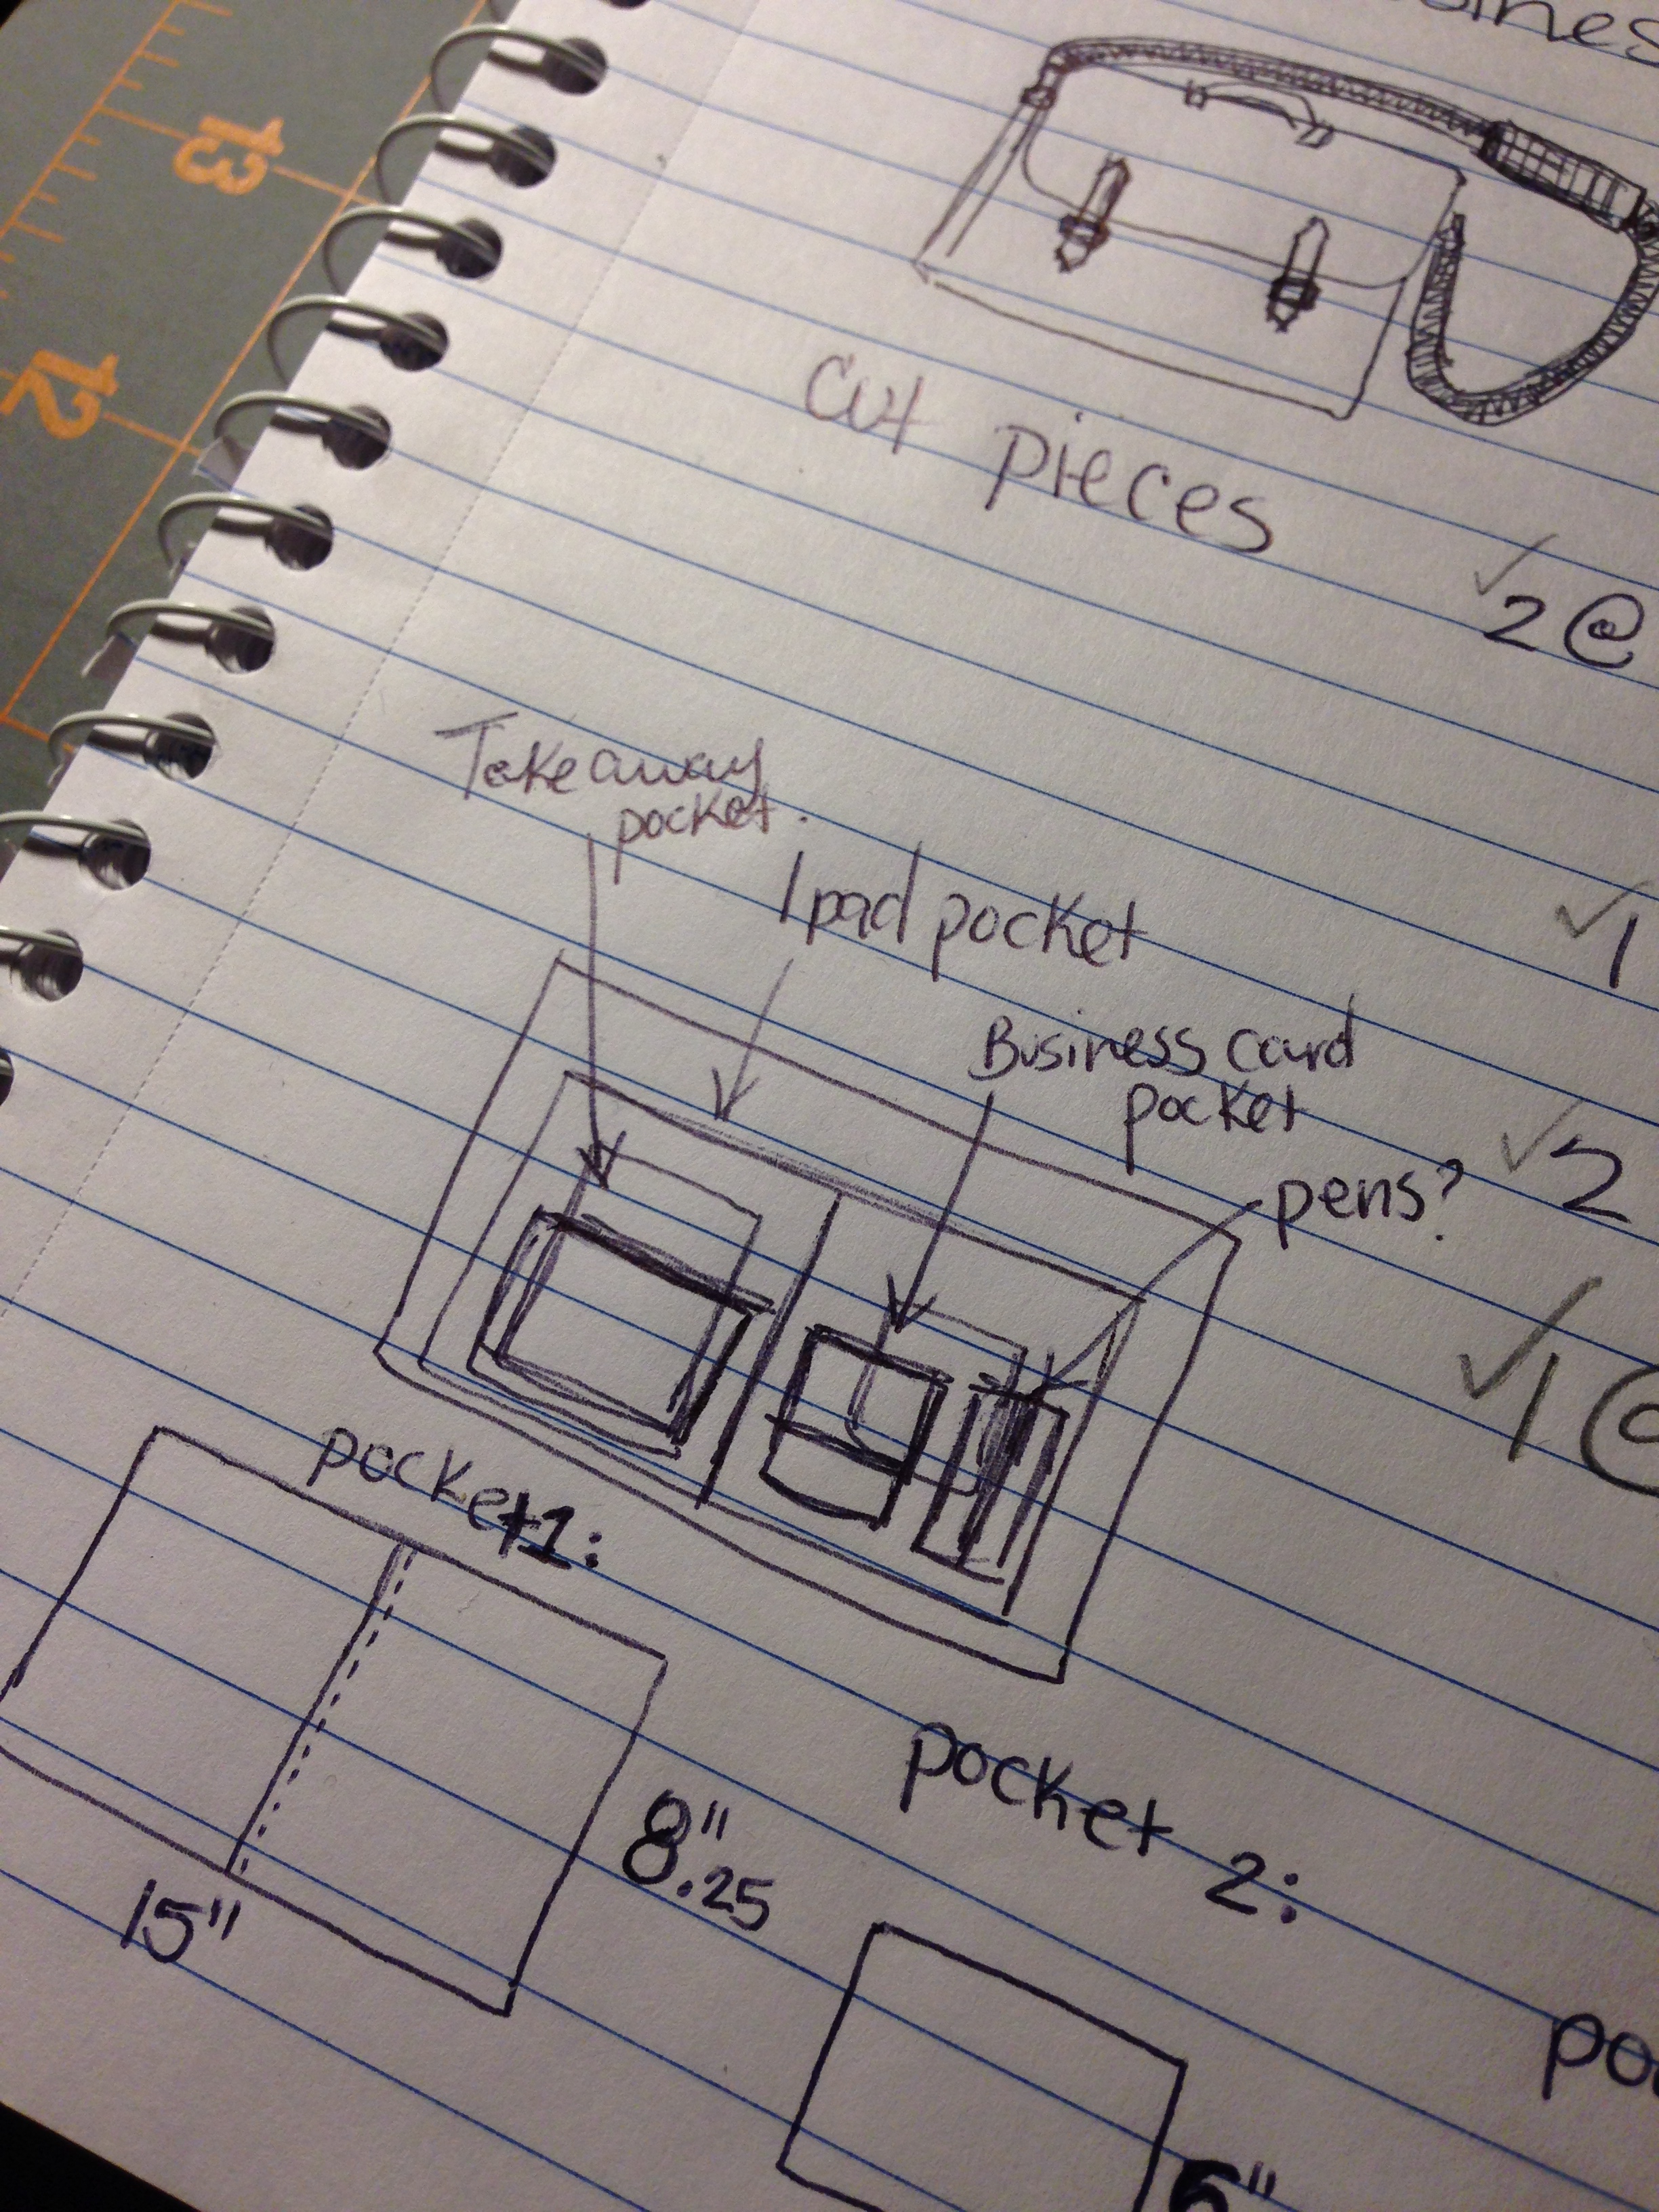 13
12
cut pieces
2@
Takeaway
pocket.
1
Ipad pocket
Business card
pocket
2
pens?
1@
pocket1:
8"
.25
15"
pocket 2:
6"